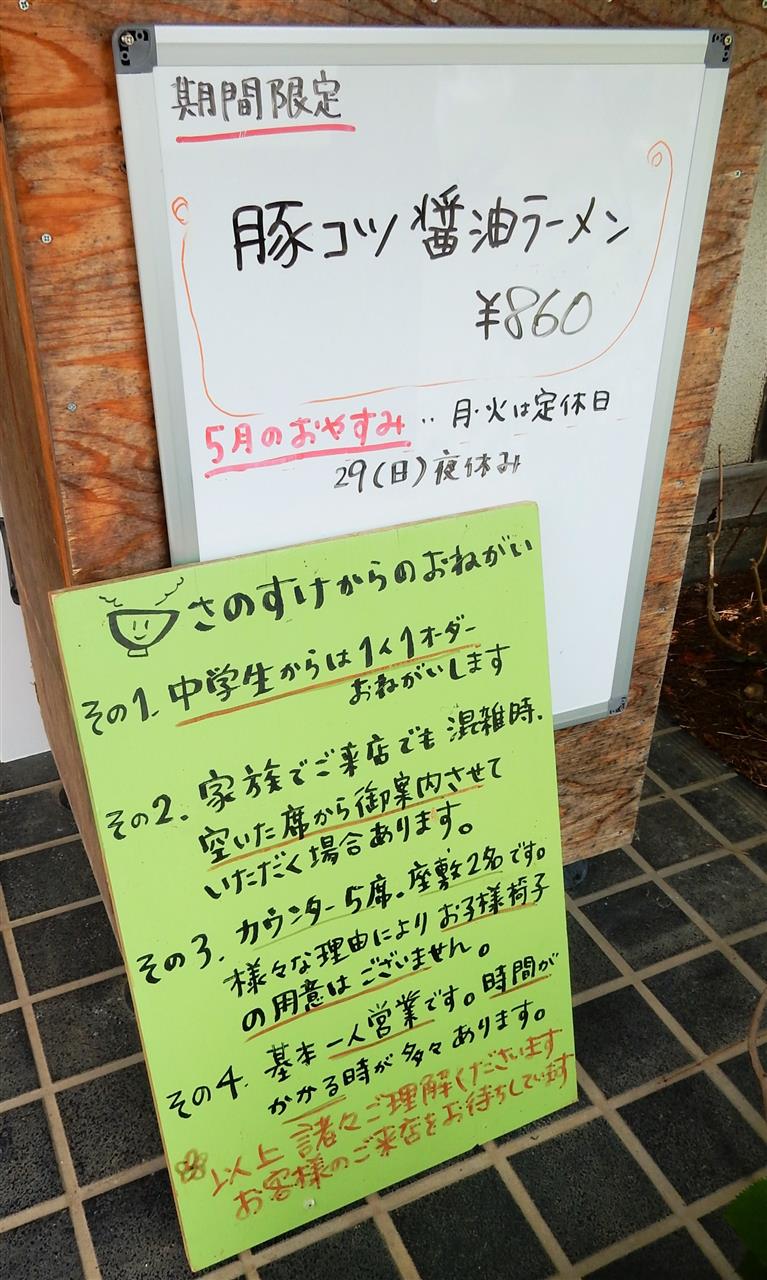 期間限定
豚コツ醤油ラーメン
¥860
5月のおやすみ‥月・火は定休日
29(日)夜休み
さのすけからのおねがい
その1.中学生からは1人1オーダー
おねがいします
その2.家族でご来店でも混雑時.
空いた席から御案内させて
いただく場合あります。
その3.カウンター5席.座敷2名です。
様々な理由によりお子様椅子
の用意はございません。
その4.基本一人営業です。時間が
かかる時が多々あります。
以上諸々ご理解くださいます
お客様のご来店をお待ちしています